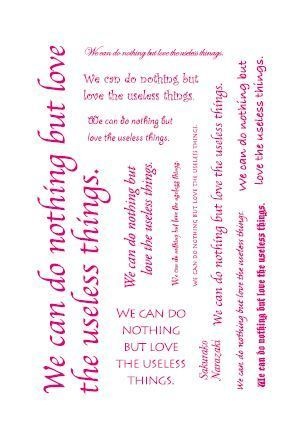 We can do nothing but love
the useless things.
We can do nothing but love the useless things.
We can do nothing, but
love the useless things.
We can do nothing but
love the useless things.
We can do nothing but
love the useless things.
We can do nothing but love the useless things.
WE CAN DO NOTHING BUT LOVE THE USELESS THINGS.
We can do nothing but love the useless things.
We can do nothing but
love the useless things.
WE CAN DO
NOTHING
BUT LOVE
THE USELESS
THINGS.
Sakurako
Narazaki
We can do nothing but love the useless things.
We can do nothing but love the useless things.